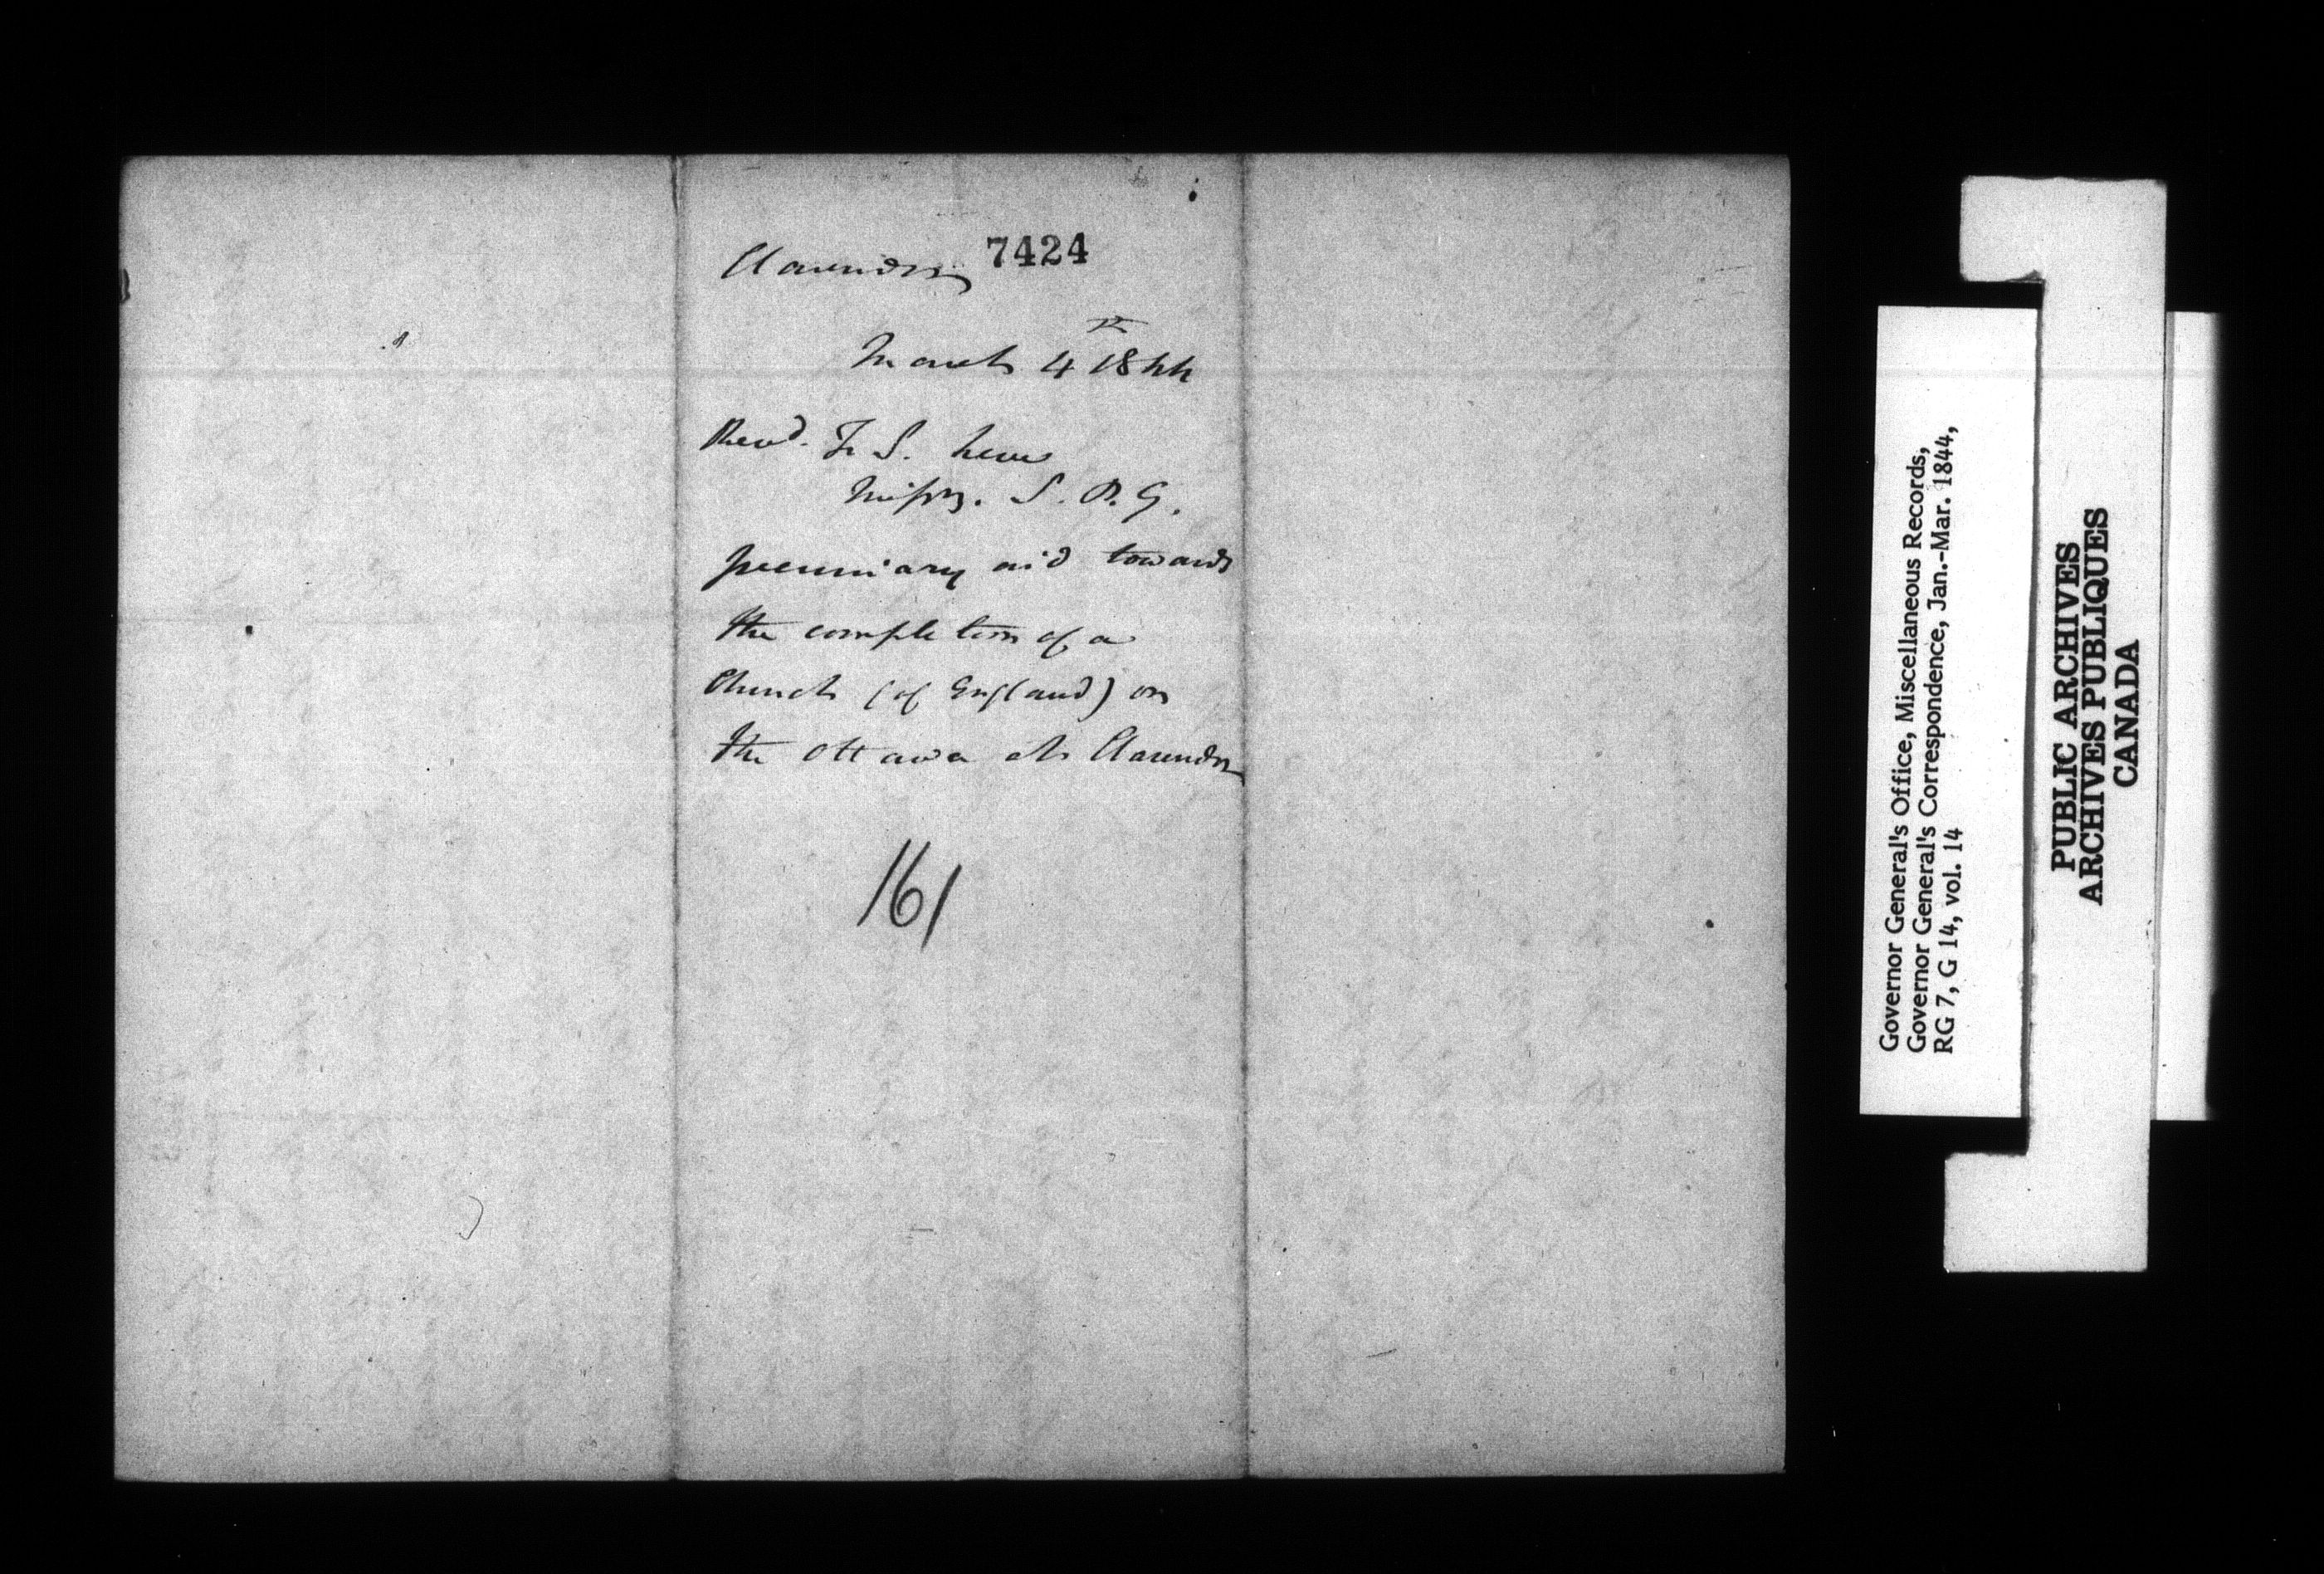 7424
Clarendon
March 4th 1844
Revd. F. S. Neve
Missy. S. P. G.
pecuniary aid towards
the completion of a
Church (of England) on
the Ottawa at Clarendon
161
Governor General's Office, Miscellaneous Records,
Governor General's Correspondence, Jan.-Mar. 1844,
RG 7, G 14, vol. 14
PUBLIC ARCHIVES
ARCHIVES PUBLIQUES
CANADA